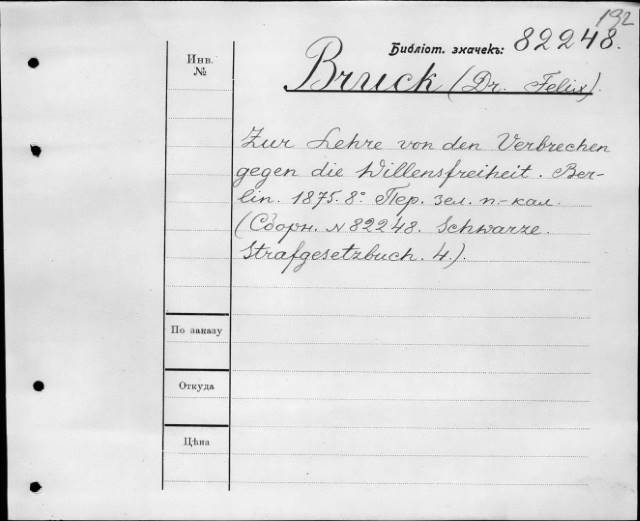 192
Библіот. значекъ: 82248.
Инв.
№
Bruck (Dr. Felix).
Zur Lehre von den Verbrechen
gegen die Willensfreiheit. Ber-
lin. 1875. 8°. Пер. зел. п.-кал.
(Сборн. N 82248. Schwarze.
Strafgesetzbuch. 4.).
По заказу
Откуда
Цѣна